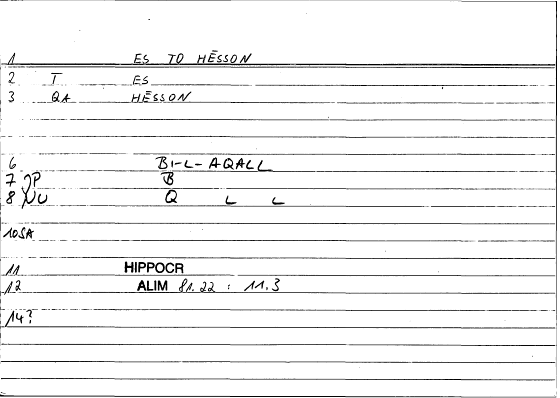 1 ES TO HĒSSON
2 T ES
3 QA HĒSSON
6 BI-L-AQALL
7 JP B
8 NU Q L L
10SA
11 HIPPOCR
12 ALIM 81.22 : 11.3
14?